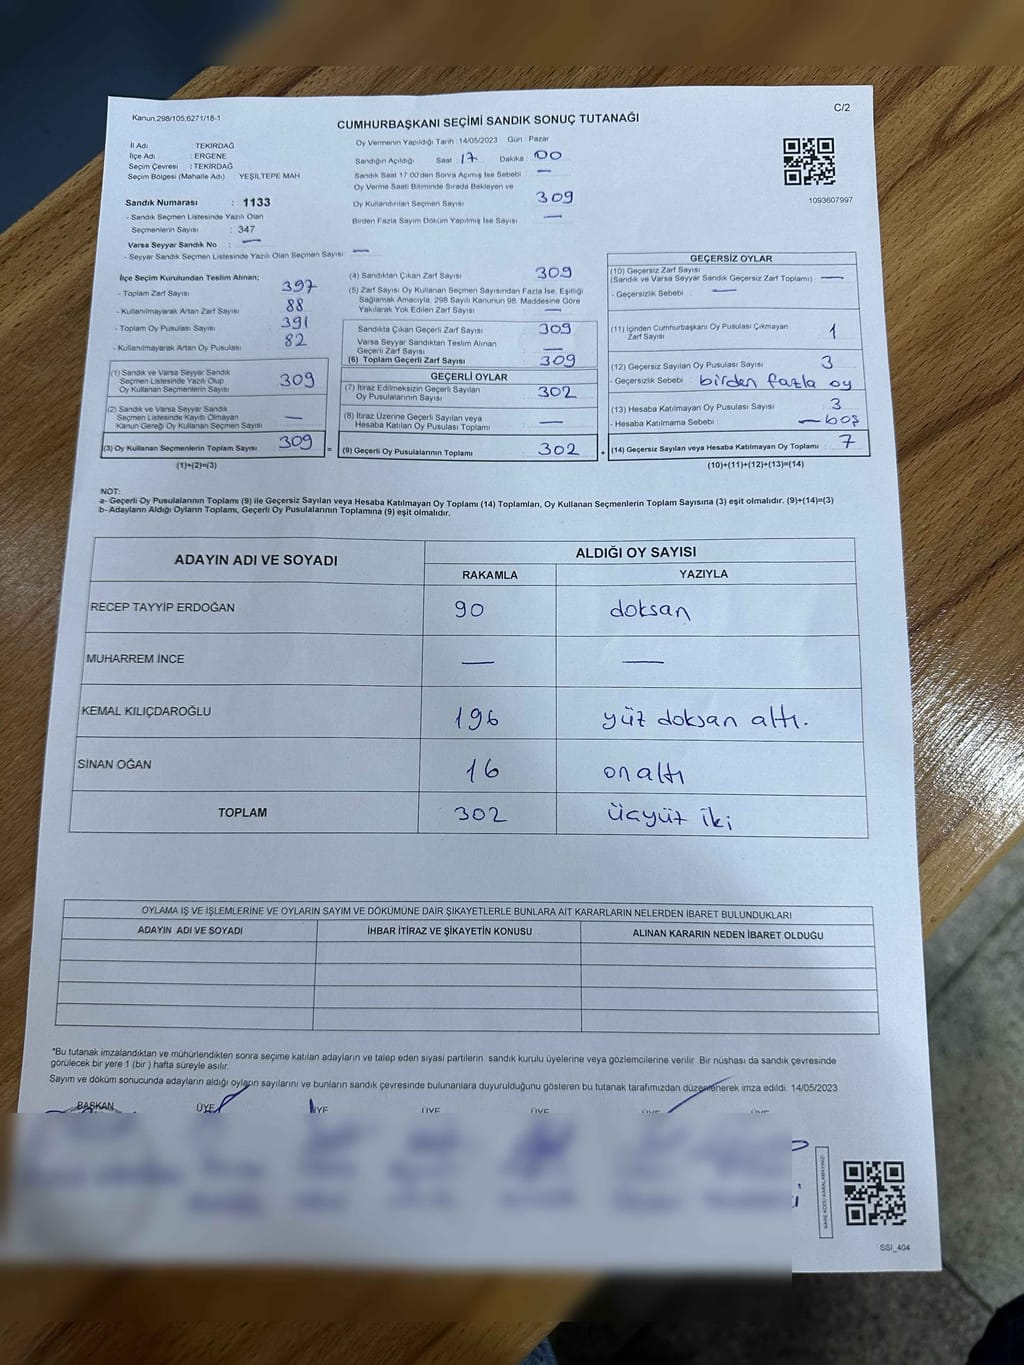 Kanun,298/105,6271/18-1
C/2
CUMHURBAŞKANI SEÇİMİ SANDIK SONUÇ TUTANAĞI
İl Adı : TEKİRDAĞ
İlçe Adı : ERGENE
Seçim Çevresi : TEKİRDAĞ
Seçim Bölgesi (Mahalle Adı) YEŞİLTEPE MAH.
Sandık Numarası : 1133
- Sandık Seçmen Listesinde Yazılı Olan
Seçmenlerin Sayısı : 347
Varsa Seyyar Sandık No : —
- Seyyar Sandık Seçmen Listesinde Yazılı Olan Seçmen Sayısı : —
Oy Vermenin Yapıldığı Tarih : 14/05/2023 Gün : Pazar
Sandığın Açıldığı Saat : 17 Dakika : 00
Sandık Saat 17:00'den Sonra Açımış İse Sebebi —
Oy Verme Saati Bitiminde Sırada Bekleyen ve
Oy Kullandırılan Seçmen Sayısı 309
Birden Fazla Sayım Döküm Yapılmış İse Sayısı —
1093607997
İlçe Seçim Kurulundan Teslim Alınan;
- Toplam Zarf Sayısı 397
- Kullanılmayarak Artan Zarf Sayısı 88
- Toplam Oy Pusulası Sayısı 391
- Kullanılmayarak Artan Oy Pusulası 82
(1) Sandık ve Varsa Seyyar Sandık
Seçmen Listesinde Yazılı Olup
Oy Kullanan Seçmenlerin Sayısı 309
(2) Sandık ve Varsa Seyyar Sandık
Seçmen Listesinde Kayıtlı Olmayan
Kanun Gereği Oy Kullanan Seçmen Sayısı —
(3) Oy Kullanan Seçmenlerin Toplam Sayısı 309 =
(1)+(2)=(3)
(4) Sandıktan Çıkan Zarf Sayısı 309
(5) Zarf Sayısı Oy Kullanan Seçmen Sayısından Fazla İse, Eşitliği
Sağlamak Amacıyla, 298 Sayılı Kanunun 98. Maddesine Göre
Yakılarak Yok Edilen Zarf Sayısı —
Sandıkta Çıkan Geçerli Zarf Sayısı 309
Varsa Seyyar Sandıktan Teslim Alınan
Geçerli Zarf Sayısı —
(6) Toplam Geçerli Zarf Sayısı 309
GEÇERLİ OYLAR
(7) İtiraz Edilmeksizin Geçerli Sayılan
Oy Pusulalarının Sayısı 302
(8) İtiraz Üzerine Geçerli Sayılan veya
Hesaba Katılan Oy Pusulası Toplamı —
(9) Geçerli Oy Pusulalarının Toplamı 302 +
GEÇERSİZ OYLAR
(10) Geçersiz Zarf Sayısı
(Sandık ve Varsa Seyyar Sandık Geçersiz Zarf Toplamı) : —
- Geçersizlik Sebebi : —
(11) İçinden Cumhurbaşkanı Oy Pusulası Çıkmayan
Zarf Sayısı 1
(12) Geçersiz Sayılan Oy Pusulası Sayısı 3
- Geçersizlik Sebebi : birden fazla oy
(13) Hesaba Katılmayan Oy Pusulası Sayısı 3
- Hesaba Katılmama Sebebi : — boş
(14) Geçersiz Sayılan veya Hesaba Katılmayan Oy Toplamı 7
(10)+(11)+(12)+(13)=(14)
NOT:
a- Geçerli Oy Pusulalarının Toplamı (9) ile Geçersiz Sayılan veya Hesaba Katılmayan Oy Toplamı (14) Toplamları, Oy Kullanan Seçmenlerin Toplam Sayısına (3) eşit olmalıdır. (9)+(14)=(3)
b- Adayların Aldığı Oyların Toplamı, Geçerli Oy Pusulalarının Toplamına (9) eşit olmalıdır.
ADAYIN ADI VE SOYADI ALDIĞI OY SAYISI
RAKAMLA YAZIYLA
RECEP TAYYİP ERDOĞAN 90 doksan
MUHARREM İNCE — —
KEMAL KILIÇDAROĞLU 196 yüz doksan altı.
SİNAN OĞAN 16 onaltı
TOPLAM 302 üçyüz iki
OYLAMA İŞ VE İŞLEMLERİNE VE OYLARIN SAYIM VE DÖKÜMÜNE DAİR ŞİKAYETLERLE BUNLARA AİT KARARLARIN NELERDEN İBARET BULUNDUKLARI
ADAYIN ADI VE SOYADI İHBAR İTİRAZ VE ŞİKAYETİN KONUSU ALINAN KARARIN NEDEN İBARET OLDUĞU
*Bu tutanak imzalandıktan ve mühürlendikten sonra seçime katılan adayların ve talep eden siyasi partilerin sandık kurulu üyelerine veya gözlemcilerine verilir. Bir nüshası da sandık çevresinde
görülecek bir yere 1 (bir ) hafta süreyle asılır.
Sayım ve döküm sonucunda adayların aldığı oyların sayılarını ve bunların sandık çevresinde bulunanlara duyurulduğunu gösteren bu tutanak tarafımızdan düzenlenerek imza edildi. 14/05/2023
BAŞKAN ÜYE ÜYE ÜYE ÜYE ÜYE ÜYE
SSI_404